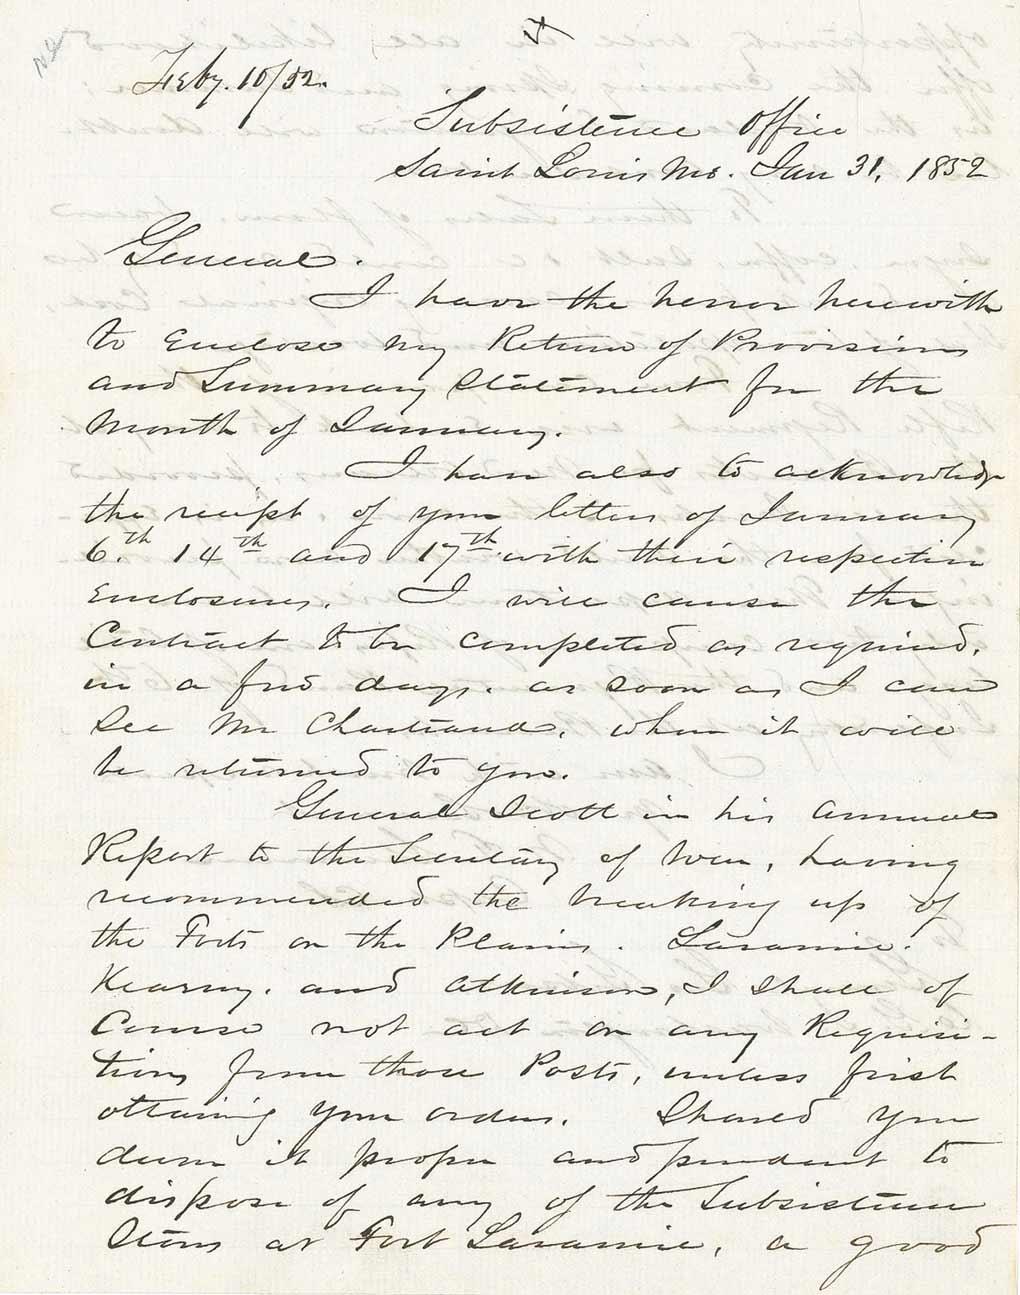 Feby. 10/52.
Subsistence Office
Saint Louis Mo. Jan 31, 1852
General.
I have the honor herewith
to Enclose my Return of Provisions
and Summary Statement for the
Month of January.
I have also to acknowledge
the receipt of your letters of January
6.th 14th and 17th with their respective
Enclosures. I will cause the
Contract to be completed as required,
in a few days. as soon as I can
See Mr Chartrand, when it will
be returned to you.
General Scott in his Annual
Report to the Secretary of War, having
recommended the breaking up of
the Forts on the Plains. Laramie.
Kearny. and Atkinson, I shall of
Course not act on any Requisi-
tions from those Posts, unless first
obtaining your orders. Should you
deem it proper and prudent to
dispose of any of the Subsistence
Stores at Fort Laramie, a good